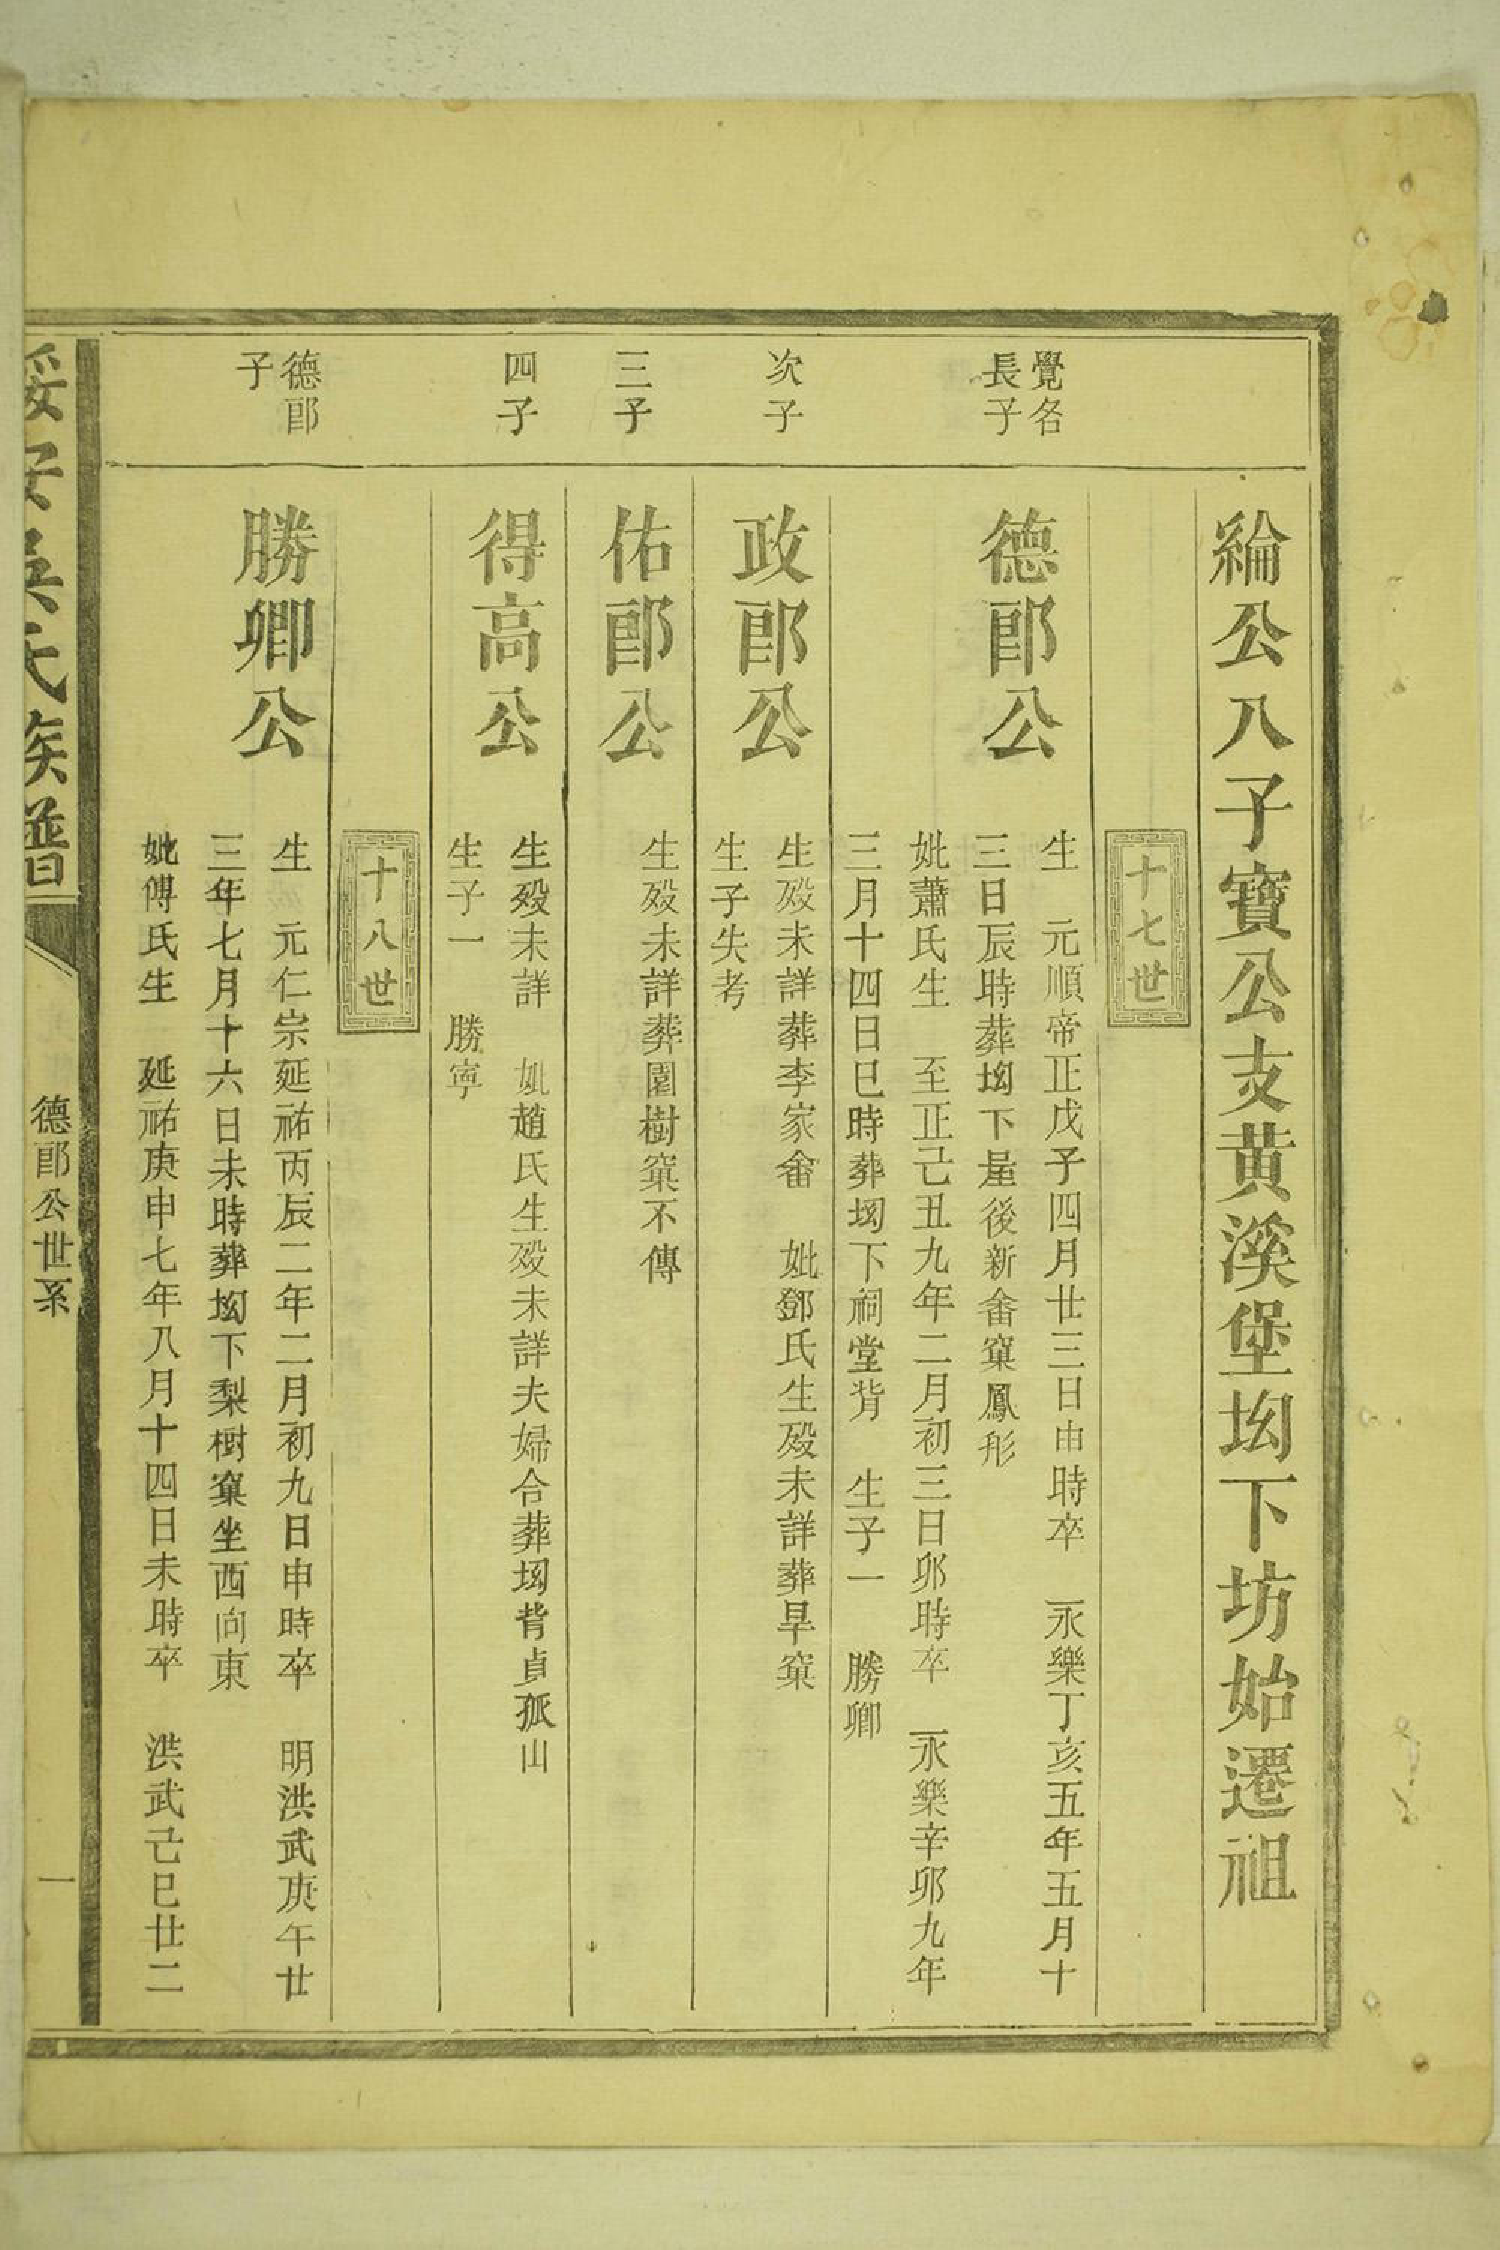 綸公八子寶公支黄溪堡坳下坊始遷祖
十七世
覺名
長子
德郎公
生　元順帝正戊子四月廿三日由時卒　永樂丁亥五年五月十
三日辰時葬坳下屋後新畬窠鳳形
妣蕭氏生　至正己丑九年二月初三日卯時卒　永樂辛卯九年
三月十四日巳時葬坳下祠堂背　生子一　勝卿
次子
政郎公
生歿未詳葬李家畬　妣鄧氏生歿未詳葬旱窠
生子失考
三子
佑郎公
生歿未詳葬園樹窠不傳
四子
得高公
生歿未詳　妣趙氏生歿未詳夫婦合葬坳背貞孤山
生子一　勝寧
十八世
德郎
子
勝卿公
生　元仁宗延祐丙辰二年二月初九日申時卒　明洪武庚午廿
三年七月十六日未時葬坳下梨樹窠坐西向東
妣傅氏生　延祐庚申七年八月十四日未時卒　洪武己巳廿二
綏安吳氏族譜
德郎公世系
一